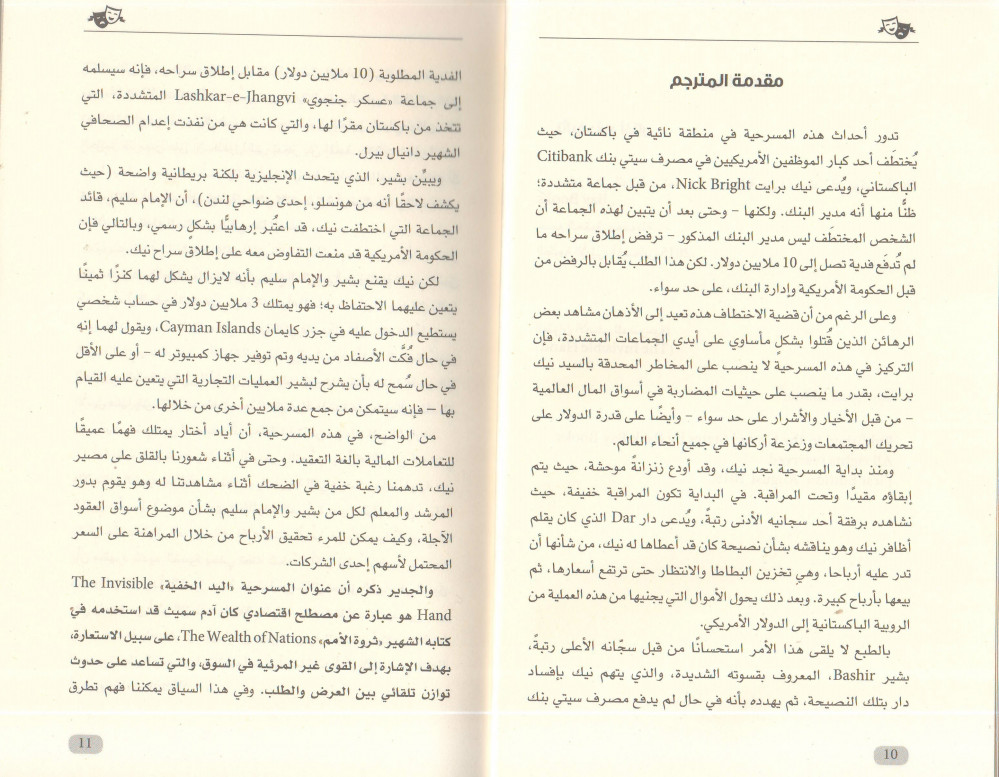 مقدمة المترجم
تدور أحداث هذه المسرحية في منطقة نائية في باكستان، حيث
يُختطَف أحد كبار الموظفين الأمريكيين في مصرف سيتي بنك Citibank
الباكستاني، ويُدعى نيك برايت Nick Bright، من قبل جماعة متشددة؛
ظنًّا منها أنه مدير البنك. ولكنها – وحتى بعد أن يتبين لهذه الجماعة أن
الشخص المختطَف ليس مدير البنك المذكور – ترفض إطلاق سراحه ما
لم تُدفَع فدية تصل إلى 10 ملايين دولار. لكن هذا الطلب يُقابل بالرفض من
قبل الحكومة الأمريكية وإدارة البنك، على حد سواء.
وعلى الرغم من أن قضية الاختطاف هذه تعيد إلى الأذهان مشاهد بعض
الرهائن الذين قُتلوا بشكلٍ مأساوي على أيدي الجماعات المتشددة، فإن
التركيز في هذه المسرحية لا ينصب على المخاطر المحدقة بالسيد نيك
برايت، بقدر ما ينصب على حيثيات المضاربة في أسواق المال العالمية
– من قبل الأخيار والأشرار على حد سواء – وأيضًا على قدرة الدولار على
تحريك المجتمعات وزعزعة أركانها في جميع أنحاء العالم.
ومنذ بداية المسرحية نجد نيك، وقد أودع زنزانةً موحشة، حيث يتم
إبقاؤه مقيدًا وتحت المراقبة. في البداية تكون المراقبة خفيفة، حيث
نشاهده برفقة أحد سجانيه الأدنى رتبةً، ويُدعى دار Dar الذي كان يقلم
أظافر نيك وهو يناقشه بشأن نصيحة كان قد أعطاها له نيك، من شأنها أن
تدر عليه أرباحا، وهي تخزين البطاطا والانتظار حتى ترتفع أسعارها، ثم
بيعها بأرباح كبيرة. وبعد ذلك يحول الأموال التي يجنيها من هذه العملية من
الروبية الباكستانية إلى الدولار الأمريكي.
بالطبع لا يلقى هذا الأمر استحسانًا من قبل سجّانه الأعلى رتبةً،
بشير Bashir، المعروف بقسوته الشديدة، والذي يتهم نيك بإفساد
دار بتلك النصيحة، ثم يهدده بأنه في حال لم يدفع مصرف سيتي بنك
10
الفدية المطلوبة (10 ملايين دولار) مقابل إطلاق سراحه، فإنه سيسلمه
إلى جماعة «عسكر جنجوي» Lashkar-e-Jhangvi المتشددة، التي
تتخذ من باكستان مقرًا لها، والتي كانت هي من نفذت إعدام الصحافي
الشهير دانيال بيرل.
ويبيِّن بشير، الذي يتحدث الإنجليزية بلكنة بريطانية واضحة (حيث
يكشف لاحقًا أنه من هونسلو، إحدى ضواحي لندن)، أن الإمام سليم، قائد
الجماعة التي اختطفت نيك، قد اعتُبر إرهابيًّا بشكلٍ رسمي، وبالتالي فإن
الحكومة الأمريكية قد منعت التفاوض معه على إطلاق سراح نيك.
لكن نيك يقنع بشير والإمام سليم بأنه لايزال يشكل لهما كنزًا ثمينًا
يتعين عليهما الاحتفاظ به؛ فهو يمتلك 3 ملايين دولار في حساب شخصي
يستطيع الدخول عليه في جزر كايمان Cayman Islands، ويقول لهما إنه
في حال فُكَّت الأصفاد من يديه وتم توفير جهاز كمبيوتر له – أو على الأقل
في حال سُمح له بأن يشرح لبشير العمليات التجارية التي يتعين عليه القيام
بها – فإنه سيتمكن من جمع عدة ملايين أخرى من خلالها.
من الواضح، في هذه المسرحية، أن أياد أختار يمتلك فهمًا عميقًا
للتعاملات المالية بالغة التعقيد. وحتى في أثناء شعورنا بالقلق على مصير
نيك، تدهمنا رغبة خفية في الضحك أثناء مشاهدتنا له وهو يقوم بدور
المرشد والمعلم لكل من بشير والإمام سليم بشأن موضوع أسواق العقود
الآجلة، وكيف يمكن للمرء تحقيق الأرباح من خلال المراهنة على السعر
المحتمل لأسهم إحدى الشركات.
والجدير ذكره أن عنوان المسرحية «اليد الخفية» The Invisible
Hand هو عبارة عن مصطلح اقتصادي كان آدم سميث قد استخدمه في
كتابه الشهير «ثروة الأمم» The Wealth of Nations، على سبيل الاستعارة،
بهدف الإشارة إلى القوى غير المرئية في السوق، والتي تساعد على حدوث
توازن تلقائي بين العرض والطلب. وفي هذا السياق يمكننا فهم تطرق
11